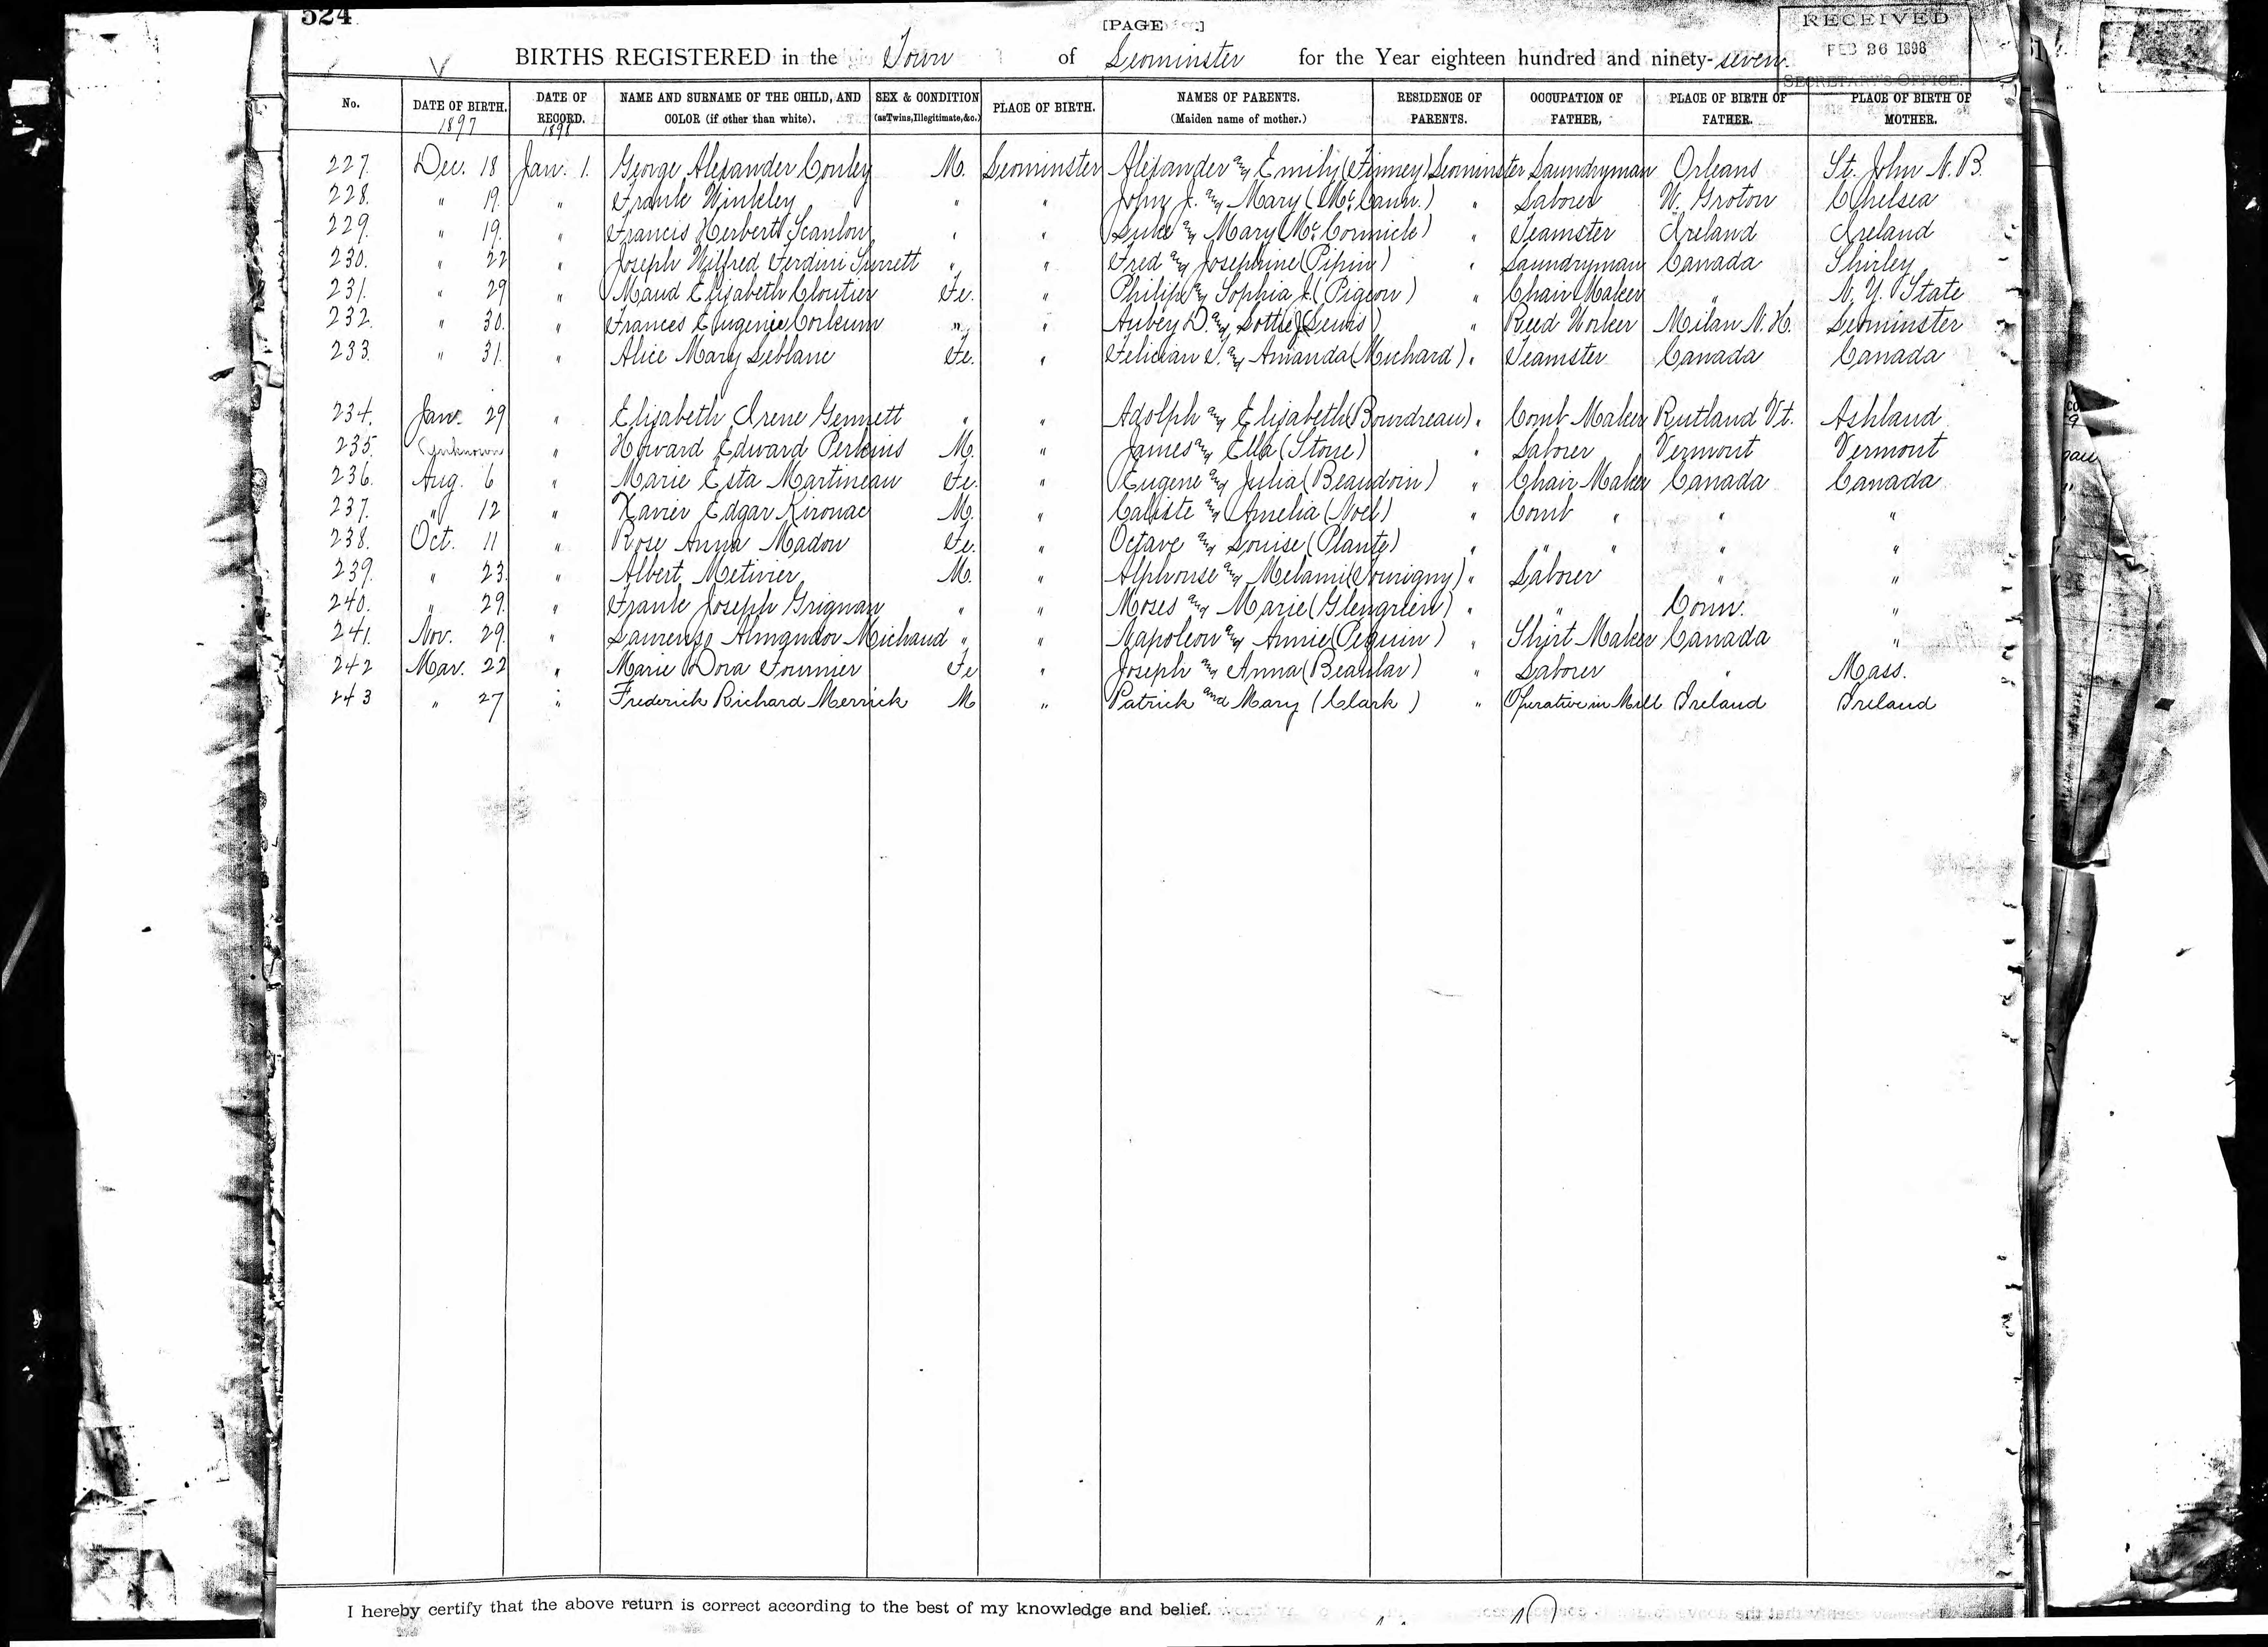 524
[PAGE ]
RECEIVED
FEB 26 1898
SECRETARY'S OFFICE.
BIRTHS REGISTERED in the Town of Leominster for the Year eighteen hundred and ninety-seven.
No. DATE OF BIRTH. 1897 DATE OF RECORD. 1898 NAME AND SURNAME OF THE CHILD, AND COLOR (if other than white). SEX & CONDITION (as Twins, Illegitimate, &c.) PLACE OF BIRTH. NAMES OF PARENTS. (Maiden name of mother.) RESIDENCE OF PARENTS. OCCUPATION OF FATHER, PLACE OF BIRTH OF FATHER. PLACE OF BIRTH OF MOTHER.
227. Dec. 18 Jan. 1. George Alexander Conley M. Leominster Alexander and Emily (Finney) Leominster Laundryman Orleans St. John N. B.
228. " 19. " Frank Winkley " " John J. and Mary (McCann.) " Laborer W. Groton Chelsea
229. " 19. " Francis Herbert Scanlon " " Luke and Mary (McCormick) " Teamster Ireland Ireland
230. " 22 " Joseph Wilfred Ferdini " " Fred and Josephine (Pipin) " Laundryman Canada Shirley
231. " 29 " Maud Elizabeth Cloutier Fe. " Philip and Sophia J. (Pigeon) " Chair Maker " N. Y. State
232. " 30. " Frances Eugenie Corkum " " Aubey D. and Lottie J. (Lewis) " Reed Worker Milan N. H. Leominster
233. " 31. " Alice Mary Leblanc Fe. " Felician T. and Amanda (Michard) " Teamster Canada Canada
234. Jan. 29 " Elizabeth Irene Gennett " " Adolph and Elizabeth (Bourdreau) " Comb Maker Rutland Vt. Ashland
235. Unknown " Howard Edward Perkins M. " James and Ella (Stone) " Laborer Vermont Vermont
236. Aug. 6 " Marie Esta Martineau Fe. " Eugene and Julia (Beaudoin) " Chair Maker Canada Canada
237. " 12 " Xavier Edgar Kirouac M. " Caliste and Amelia (Noel) " Comb " " "
238. Oct. 11 " Rose Anna Madon Fe. " Octave and Louise (Plante) " " " " "
239. " 23. " Albert Metivier M. " Alphonse and Melami (Souvigny) " Laborer " "
240. " 29. " Frank Joseph Grignan " " Moses and Marie (Glengrein) " " Conn. "
241. Nov. 29. " Laurenzo Almandor Michaud " " Napoleon and Annie (Pequin) " Shirt Maker Canada "
242 Mar. 22 " Marie Dora Fournier Fe " Joseph and Anna (Beaular) " Laborer " Mass.
243 " 27 " Frederick Richard Merrick M " Patrick and Mary (Clark) " Operative in Mill Ireland Ireland
I hereby certify that the above return is correct according to the best of my knowledge and belief.